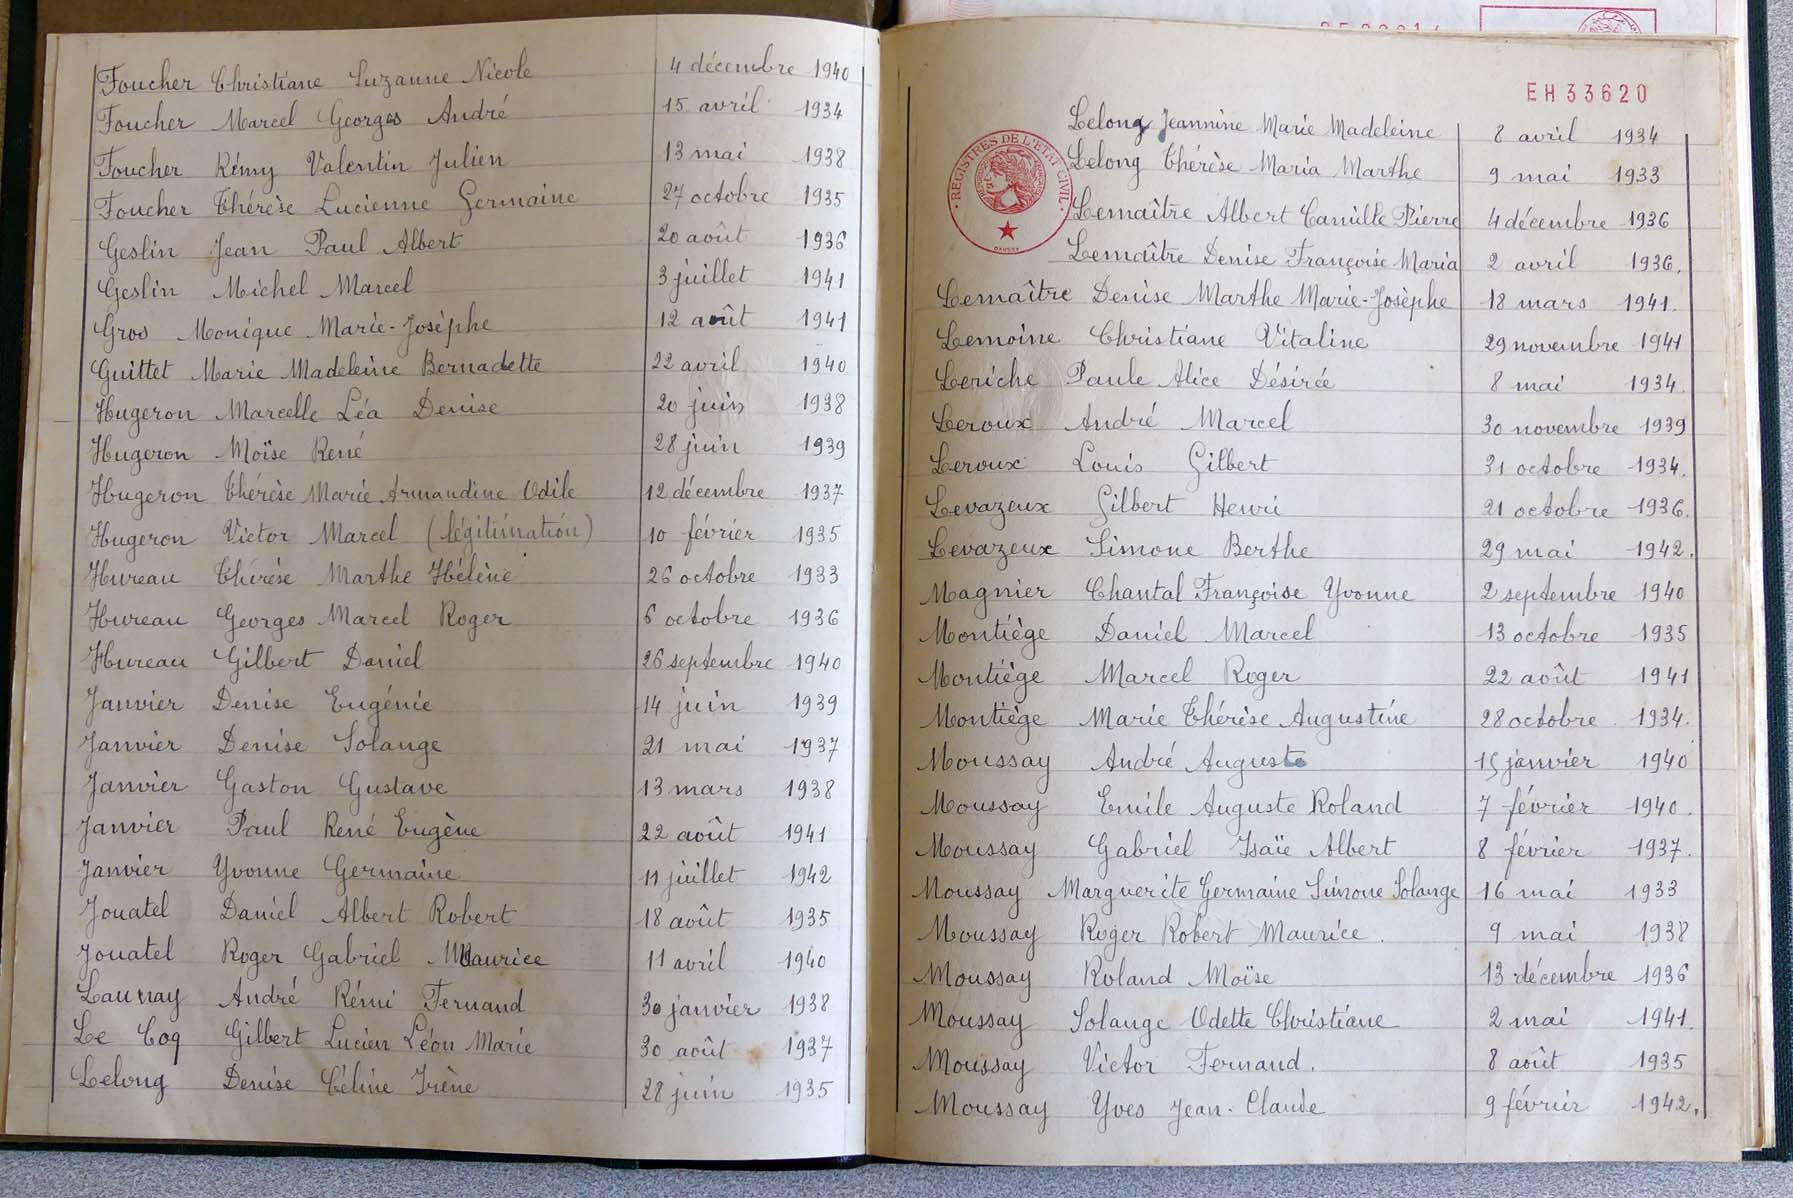 Foucher Christiane Suzanne Nicole 4 décembre 1940
Foucher Marcel Georges André 15 avril 1934
Foucher Rémy Valentin Julien 13 mai 1938
Foucher Thérèse Lucienne Germaine 27 octobre 1935
Geslin Jean Paul Albert 20 août 1936
Geslin Michel Marcel 3 juillet 1941
Gros Monique Marie-Josèphe 12 août 1941
Guittet Marie Madeleine Bernadette 22 avril 1940
Hugeron Marcelle Léa Denise 20 juin 1938
Hugeron Moïse René 28 juin 1939
Hugeron Thérèse Marie Armandine Odile 12 décembre 1937
Hugeron Victor Marcel (légitimation) 10 février 1935
Hureau Thérèse Marthe Hélène 26 octobre 1933
Hureau Georges Marcel Roger 6 octobre 1936
Hureau Gilbert Daniel 26 septembre 1940
Janvier Denise Eugénie 14 juin 1939
Janvier Denise Solange 21 mai 1937
Janvier Gaston Gustave 13 mars 1938
Janvier Paul René Eugène 22 août 1941
Janvier Yvonne Germaine 11 juillet 1942
Jouatel Daniel Albert Robert 18 août 1935
Jouatel Roger Gabriel Maurice 11 avril 1940
Launay André Rémi Fernand 30 janvier 1938
Le Coq Gilbert Lucien Léon Marie 30 août 1937
Lelong Denise Céline Irène 28 juin 1935
EH 33620
REGISTRES DE L'ETAT CIVIL
Lelong Jeannine Marie Madeleine 8 avril 1934
Lelong Thérèse Maria Marthe 9 mai 1933
Lemaître Albert Camille Pierre 4 décembre 1936
Lemaître Denise Françoise Maria 2 avril 1936.
Lemaître Denise Marthe Marie-Josèphe 18 mars 1941.
Lemoine Christiane Vitaline 29 novembre 1941
Leriche Paule Alice Désirée 8 mai 1934.
Leroux André Marcel 30 novembre 1939
Leroux Louis Gilbert 31 octobre 1934.
Levazeux Gilbert Henri 21 octobre 1936.
Levazeux Simone Berthe 29 mai 1942.
Magnier Chantal Françoise Yvonne 2 septembre 1940
Montiège Daniel Marcel 13 octobre 1935
Montiège Marcel Roger 22 août 1941
Montiège Marie Thérèse Augustine 28 octobre 1934.
Moussay André Auguste 15 janvier 1940
Moussay Emile Auguste Roland 7 février 1940.
Moussay Gabriel Isaïe Albert 8 février 1937.
Moussay Marguerite Germaine Simone Solange 16 mai 1933
Moussay Roger Robert Maurice. 9 mai 1938
Moussay Roland Moïse 13 décembre 1936
Moussay Solange Odette Christiane 2 mai 1941.
Moussay Victor Fernand. 8 août 1935
Moussay Yves Jean-Claude 9 février 1942.